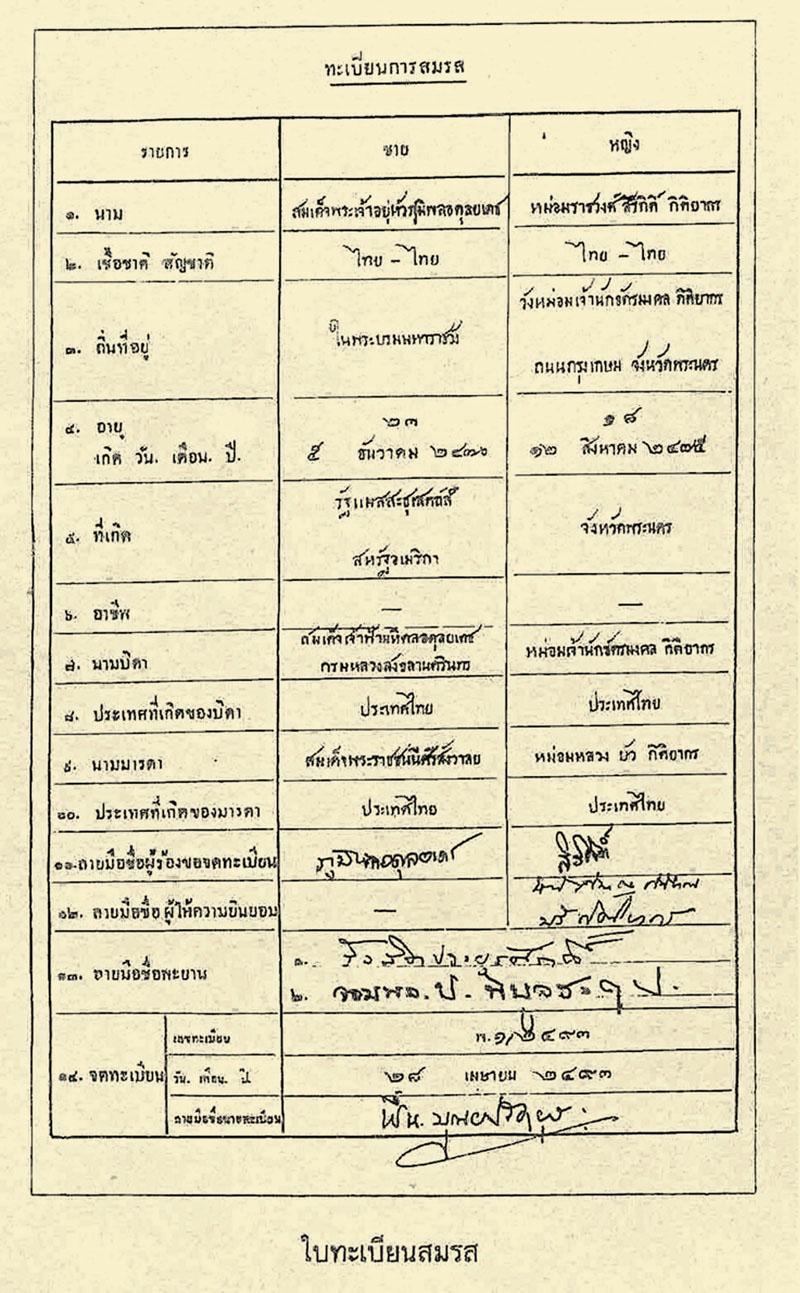 ทะเบียนการสมรส
รายการ ชาย หญิง
๑. นาม สมเด็จพระเจ้าอยู่หัวภูมิพลอดุลยเดช หม่อมราชวงศ์ สิริกิติ์ กิติยากร
๒. เชื้อชาติ สัญชาติ ไทย - ไทย ไทย - ไทย
วังหม่อมเจ้านักขัตรมงคล กิติยากร
๓. ถิ่นที่อยู่ ในพระบรมมหาราชวัง
ถนนกรุงเกษม จังหวัดพระนคร
๔. อายุ ๒๓ ๑๘
เกิด วัน. เดือน. ปี. ๕ ธันวาคม ๒๔๗๐ ๑๒ สิงหาคม ๒๔๗๕
รัฐแมสสะชูเสตส์
๕. ที่เกิด จังหวัดพระนคร
สหรัฐอเมริกา
๖. อาชีพ — —
สมเด็จเจ้าฟ้ามหิดลอดุลยเดช
๗. นามบิดา กรมหลวงสงขลานครินทร หม่อมเจ้านักขัตรมงคล กิติยากร
๘. ประเทศที่เกิดของบิดา ประเทศไทย ประเทศไทย
๙. นามมารดา สมเด็จพระราชชนนีศรีสังวาลย หม่อมหลวง บัว กิติยากร
๑๐. ประเทศที่เกิดของมารดา ประเทศไทย ประเทศไทย
๑๑. ลายมือชื่อผู้ร้องขอจดทะเบียน ภูมิพลอดุลยเดช สิริกิติ์
๑๒. ลายมือชื่อผู้ให้ความยินยอม —
๑๓. ลายมือชื่อพะยาน ๑.
๒. จอมพล.ป. พิบูลสงคราม
เลขทะเบียน พ.๑/๒๔๙๓
๑๔. จดทะเบียน วัน. เดือน. ปี ๒๘ เมษายน ๒๔๙๓
ลายมือชื่อนายทะเบียน
ใบทะเบียนสมรส